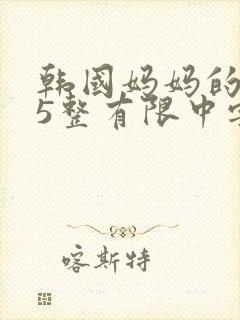 韩国妈妈的
5整有限中字
喀斯特